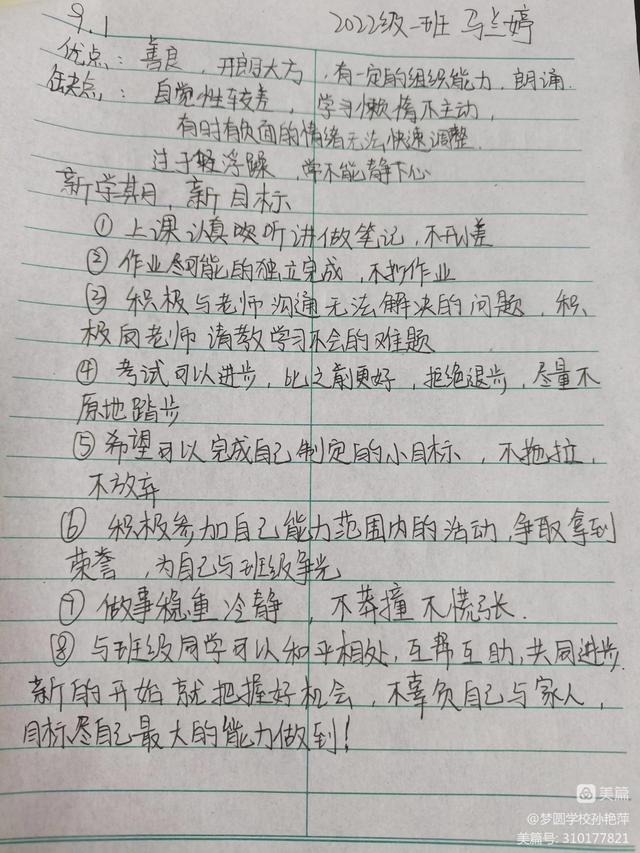 9.1 2022级一班 马兰婷
优点：善良，开朗大方，有一定的组织能力，朗诵.
缺点：自觉性较差，学习懒惰不主动，
有时有负面的情绪无法快速调整.
过于轻浮躁，常不能静下心
新学期，新目标
① 上课认真听讲做笔记，不开小差
② 作业尽可能的独立完成，不抄作业
③ 积极与老师沟通无法解决的问题，积
极向老师请教学习不会的难题
④ 考试可以进步，比之前更好，拒绝退步，尽量不
原地踏步
⑤ 希望可以完成自己制定的小目标，不拖拉，
不放弃
⑥ 积极参加自己能力范围内的活动，争取拿到
荣誉，为自己与班级争光
⑦ 做事稳重冷静，不莽撞不慌张.
⑧ 与班级同学可以和平相处，互帮互助，共同进步.
新的开始就把握好机会，不辜负自己与家人，
目标尽自己最大的能力做到！
美篇
@梦圆学校孙艳萍
美篇号: 310177821